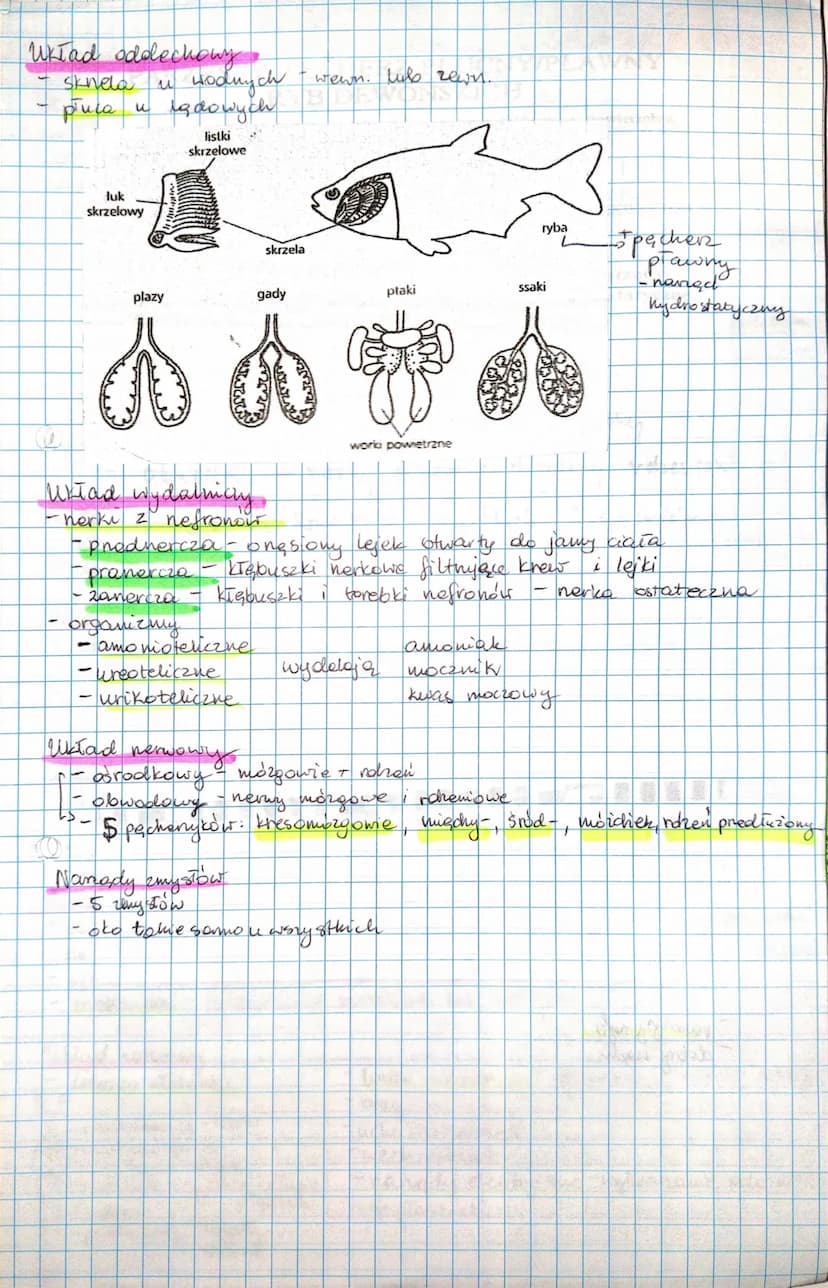 Układ oddechowy
- skrzela u wodnych - wewn. lub zewn.
- płuca u lądowych
listki
skrzelowe
łuk
skrzelowy
skrzela
ryba
+ pęcherz
pławny
- narząd
hydrostatyczny
płazy gady ptaki ssaki
worki powietrzne
Układ wydalniczy
- nerki z nefronów
- przednercza - orzęsiony lejek otwarty do jamy ciała
- pranercza - kłębuszki nerkowe filtrujące krew i lejki
- zanercza - kłębuszki i torebki nefronów - nerka ostateczna
- organizmy
- amonioteliczne amoniak
- ureoteliczne wydalają mocznik
- urikoteliczne kwas moczowy
Układ nerwowy
- ośrodkowy - mózgowie + rdzeń
- obwodowy - nerwy mózgowe i rdzeniowe
- 5 pęcherzyków: kresomózgowie, między-, śród-, móżdżek, rdzeń przedłużony
Narządy zmysłów
- 5 zmysłów
- oko takie samo u wszystkich